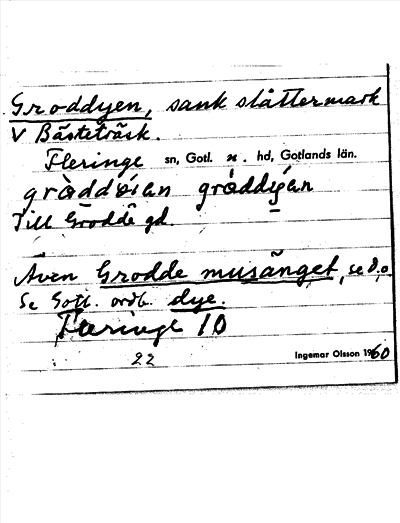 Groddyen, sank slåttermark
V Bästeträsk.
Fleringe sn, Gotl. n. hd, Gotlands län.
gràddian gràddyan
Till Grodde gd.
Även Grodde musänget, se d.o.
Se Gotl. ordb. dye.
Fleringe 10
22
Ingemar Olsson 1960